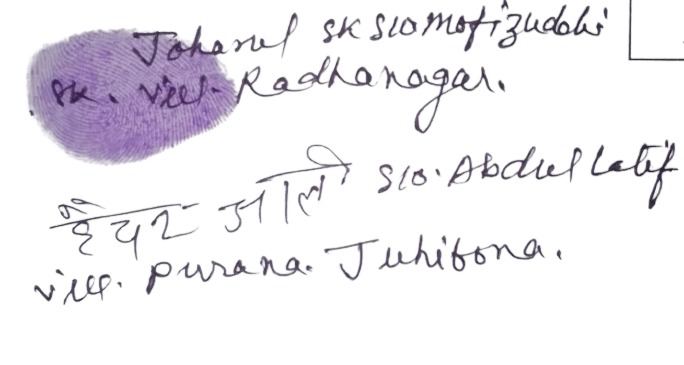 Joharul SK S/O Mofizuddi
SK. Vill. Radhanagar.
हैयर आली S/O. Abdul Latif
Vill. Purana. Juhibona.